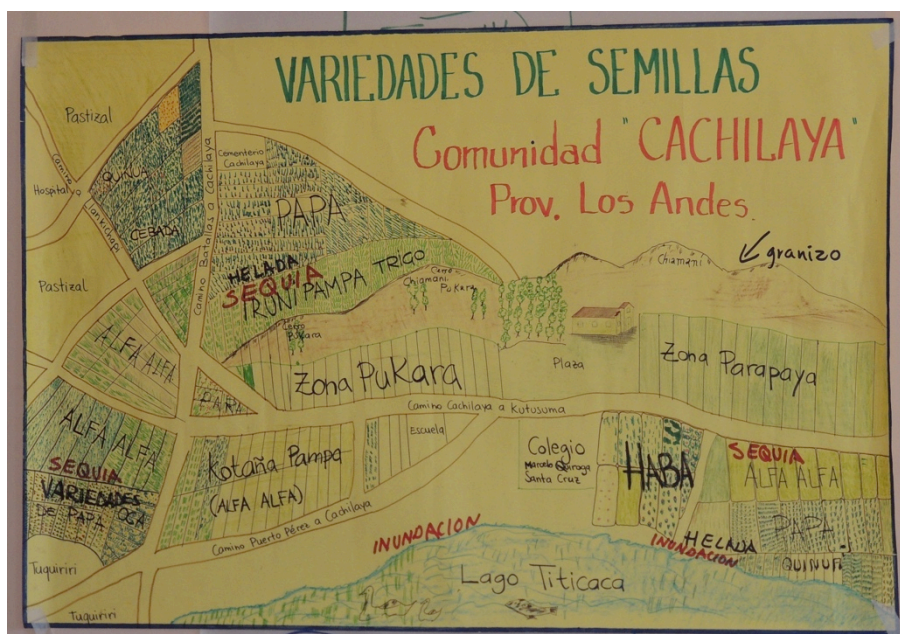 VARIEDADES DE SEMILLAS
Comunidad "CACHILAYA"
Prov. Los Andes.
Pastizal
Camino
Hospital
QUINUA
CEBADA
Camino Batallas a Cachilaya
Cementerio
Cachilaya
PAPA
HELADA
SEQUIA
IRUNI PAMPA TRIGO
Cerro
Chiamani
Cerro
PuKara
Cerro
PuKara
Chiamani
granizo
Pastizal
ALFA ALFA
PAPA
Zona PuKara
Plaza
Zona Parapaya
Camino Cachilaya a Kutusuma
ALFA ALFA
SEQUIA
VARIEDADES
DE PAPA
OCA
Kotaña Pampa
(ALFA ALFA)
Escuela
Colegio
Marcelo Quiroga
Santa Cruz
HABA
SEQUIA
ALFA ALFA
PAPA
HELADA
INUNDACION
QUINUA
Camino Puerto Pérez a Cachilaya
INUNDACION
Lago Titicaca
Tuquiriri
Tuquiriri